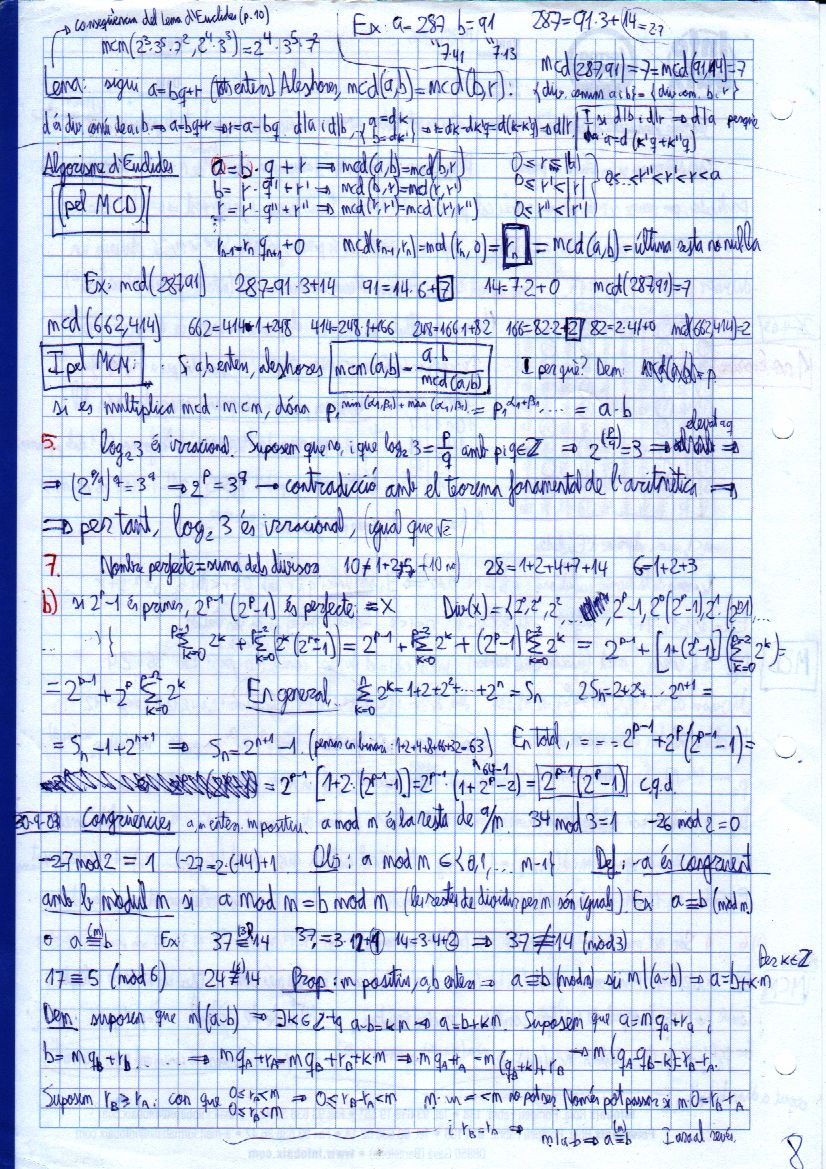 conseqüència del Lema d'Euclides (p. 10)
mcm(2³·3⁵·7², 2⁴·3³) = 2⁴·3⁵·7²
Ex: a=287 b=91 287=91·3+14
"7·41 "7·13
mcd(287,91)=7=mcd(91,14)=7
Lema: sigui a=bq+r (tot enters) Aleshores, mcd(a,b)=mcd(b,r).
{div. comuns a i b}={div. com. b i r}
d a div. comú de a i b ⇒ a=bq+r ⇒ r=a-bq. d|a i d|b, {a=dk b=dk' ⇒ r=dk-dk'q=d(k-k'q) ⇒ d|r
I si d|b i d|r ⇒ d|a perquè a=d(k'q+k'')
Algorisme d'Euclides a=b·q+r ⇒ mcd(a,b)=mcd(b,r) 0≤r≤|b|
(pel MCD) b=r·q'+r' ⇒ mcd(b,r)=mcd(r,r') 0≤r'<|r| 0≤...<r''<r'<r<a
r=r'·q''+r'' ⇒ mcd(r,r')=mcd(r',r'') 0≤r''<|r'|
rₙ₋₁=rₙ qₙ₊₁+0 mcd(rₙ₋₁,rₙ)=mcd(rₙ,0)=rₙ=mcd(a,b)=última resta no nul·la
Ex: mcd(287,91) 287=91·3+14 91=14·6+7 14=7·2+0 mcd(287,91)=7
mcd(662,414) 662=414·1+248 414=248·1+166 248=166·1+82 166=82·2+2 82=2·41+0 mcd(662,414)=2
I pel MCM: Si a,b enters, aleshores mcm(a,b)=a·b/mcd(a,b) I per què? Dem:
si es multiplica mcd·mcm, dóna p₁^(min(α₁,β₁)+max(α₁,β₁))=p₁^(α₁+β₁)... = a·b
5. log₂3 és irracional. Suposem que no, i que log₂3=p/q amb p i q∈Z ⇒ 2^(p/q)=3 ⇒ elevat a q ⇒
⇒ (2^(p/q))^q=3^q ⇒ 2^p=3^q → contradicció amb el teorema fonamental de l'aritmètica ⇒
⇒ per tant, log₂3 és irracional, (igual que √2)
7. Nombre perfecte=suma dels divisors 10≠1+2+5 (10 no) 28=1+2+4+7+14 6=1+2+3
b) si 2^p-1 és primer, 2^(p-1)(2^p-1) és perfecte =X Div(x)={2⁰,2¹,2², ..., 2^p-1, 2⁰(2^p-1), 2¹(2^p-1),
...} Σ_(k=0)^(p-1) 2^k + Σ_(k=0)^(p-2)(2^k(2^p-1)) = 2^(p-1)+Σ_(k=0)^(p-2) 2^k+(2^p-1)Σ_(k=0)^(p-2) 2^k = 2^(p-1)+[1+(2^p-1)](Σ_(k=0)^(p-2) 2^k)=
=2^(p-1)+2^p Σ_(k=0)^(p-2) 2^k En general Σ_(k=0)^n 2^k=1+2+2²+...+2ⁿ=Sₙ 2Sₙ=2+2²+...2ⁿ⁺¹=
=Sₙ-1+2ⁿ⁺¹ ⇒ Sₙ=2ⁿ⁺¹-1. (pensar en binari: 1+2+4+8+16+32=63) En total, ...=2^(p-1)+2^p(2^(p-1)-1)=
64-1
=2^(p-1)·[1+2·(2^(p-1)-1)]=2^(p-1)·(1+2^p-2)=2^(p-1)(2^p-1) c.q.d.
Congruències a,m enters, m positiu. a mod m és la resta de a/m. 34 mod 3=1 -26 mod 2=0
-27 mod 2=1 (-27=2·(-14)+1 Obs: a mod m ∈{0,1,... m-1} Def: a és congruent
amb b mòdul m si a mod m=b mod m (les restes de dividir per m són iguals). Ex a≡b (mod m)
o a≡b (m) Ex 37≢14 (3) 37=3·12+1 14=3·4+2 ⇒ 37≢14 (mod 3)
17≡5 (mod 6) 24≢14 Prop: m positiu, a,b enters ⇒ a≡b(mod m) sii m|(a-b) ⇒ a=b+k·m per k∈Z
Dem: suposem que m|(a-b) ⇒ ∃k∈Z tq a-b=km ⇒ a=b+km. Suposem que a=mq_A+r_A i
b=mq_B+r_B ... ⇒ mq_A+r_A=mq_B+r_B+km ⇒ mq_A+r_A=m(q_B+k)+r_B ⇒ m(q_A-q_B-k)=r_B-r_A.
Suposem r_B≥r_A, i com que 0≤r_A<m 0≤r_B<m ⇒ 0≤r_B-r_A<m m·un =<m no pot ser. Només pot passar si m·0=r_B-r_A
i r_B=r_A ⇒ m|a-b ⇒ a≡b (m) I ara al revés.
8